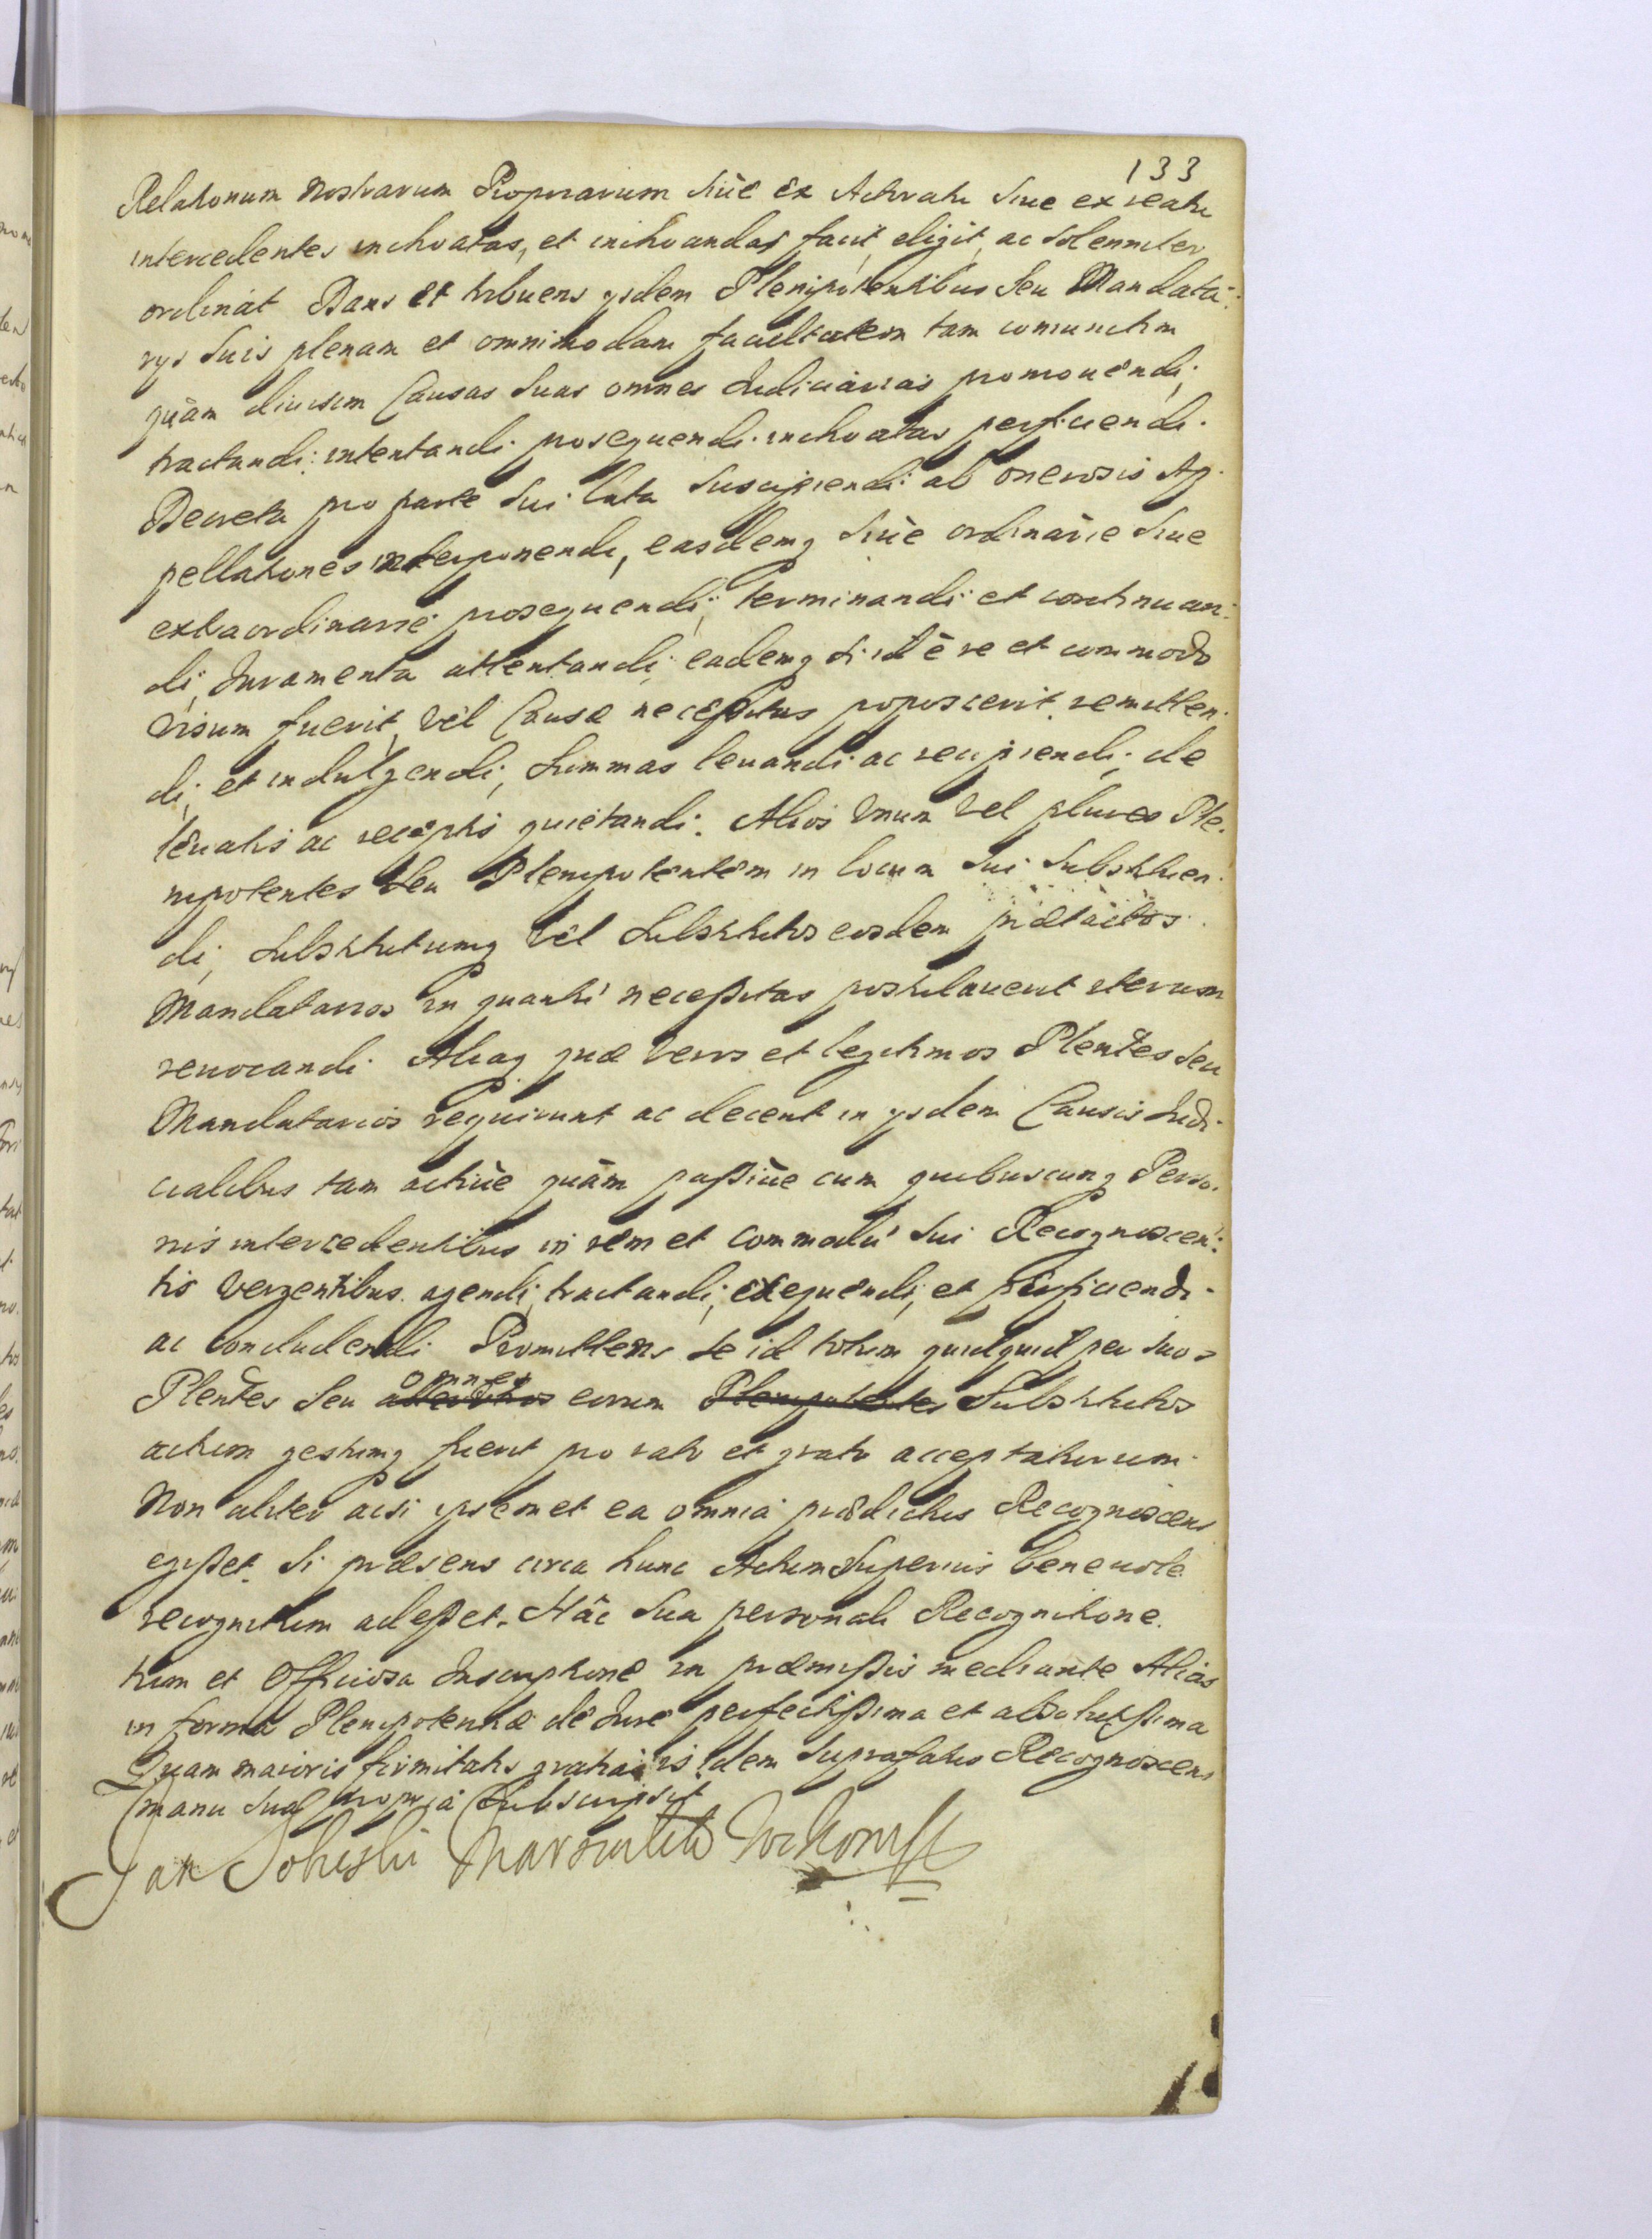 133
Relationum nostrarum Propriarum siue ex Actoratu siue ex reatu
intercedentes inchoatas, et inchoandas facit, eligit, ac solenniter
ordinat Dans et tribuens ysdem Plenipotentibus seu Mandata:
rys suis plenam et omnimodam facultatem tam coniunctim
quàm diuisim Causas suas omnes Iudiciarias promouendi,
tractandi: intentandi prosequendi. inchoatas perficiendi.
Decreta pro parte sui lata suscipiendi: ab onerosis Ap.
pellationes interponendi, easdemq siue ordinarie siue
extraordinarie prosequendi, terminandi et continuan:
di, Iuramenta attentandi, eademq si id è re et commodo
visum fuerit, vel Causæ necessitas poposcerit, remitten.
di, et indulgendi, summas leuandi ac recipiendi, de
leuatis ac receptis quietandi. Alios vnum vel plures Ple.
nipotentes seu Plenipotentem in locum sui substituen.
di, substitutumq vel substitutos eosdem prætactos.
Mandatarios in quantū necessitas postulauerit iterum
reuocandi. Aliaq quæ veros et legitimos Plentes seu
Mandatarios requirunt ac decent in ysdem Causis Iudi.
cialibus tam actiùe quàm passiùe cum quibuscunq Perso.
nis intercedentibus in rem et commodū sui Recognoscen:
tis vergentibus. agendi, tractandi, exequendi, et perficiendi.
ac concludendi. Promittens se id totum quidquid per suos
omnes
Plentes seu eorum Plenipotentes Substitutos
actum gestumq fuerit pro rato et grato accepturum.
Non aliter acsi ipsemet ea omnia prædictus Recognoscens
egisset. si præsens circa hunc Actum superius beneuole
recognitum adesset. Hâc sua personali Recognitione.
tum et Officiosa Inscriptione in præmissis mediante Alias
in forma Plenipotentiæ de Iure perfectissima et absolutissima
Quam maioris firmitatis gratia is idem suprafatus Recognoscens
manu sua propria subscripsit
Jan Sobieski Marszałek